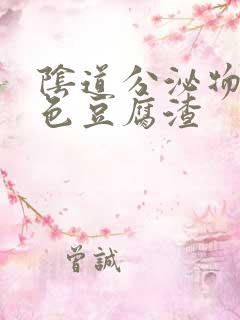 陰道分泌物
色豆腐渣
曾誠